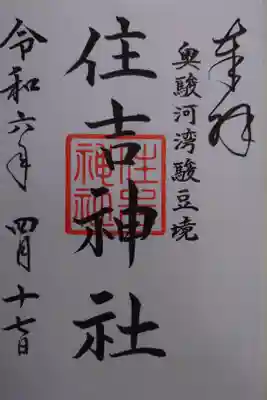 奉拝
奥駿河湾駿豆境
住吉神社
住吉
神社
令和六年 四月十七日